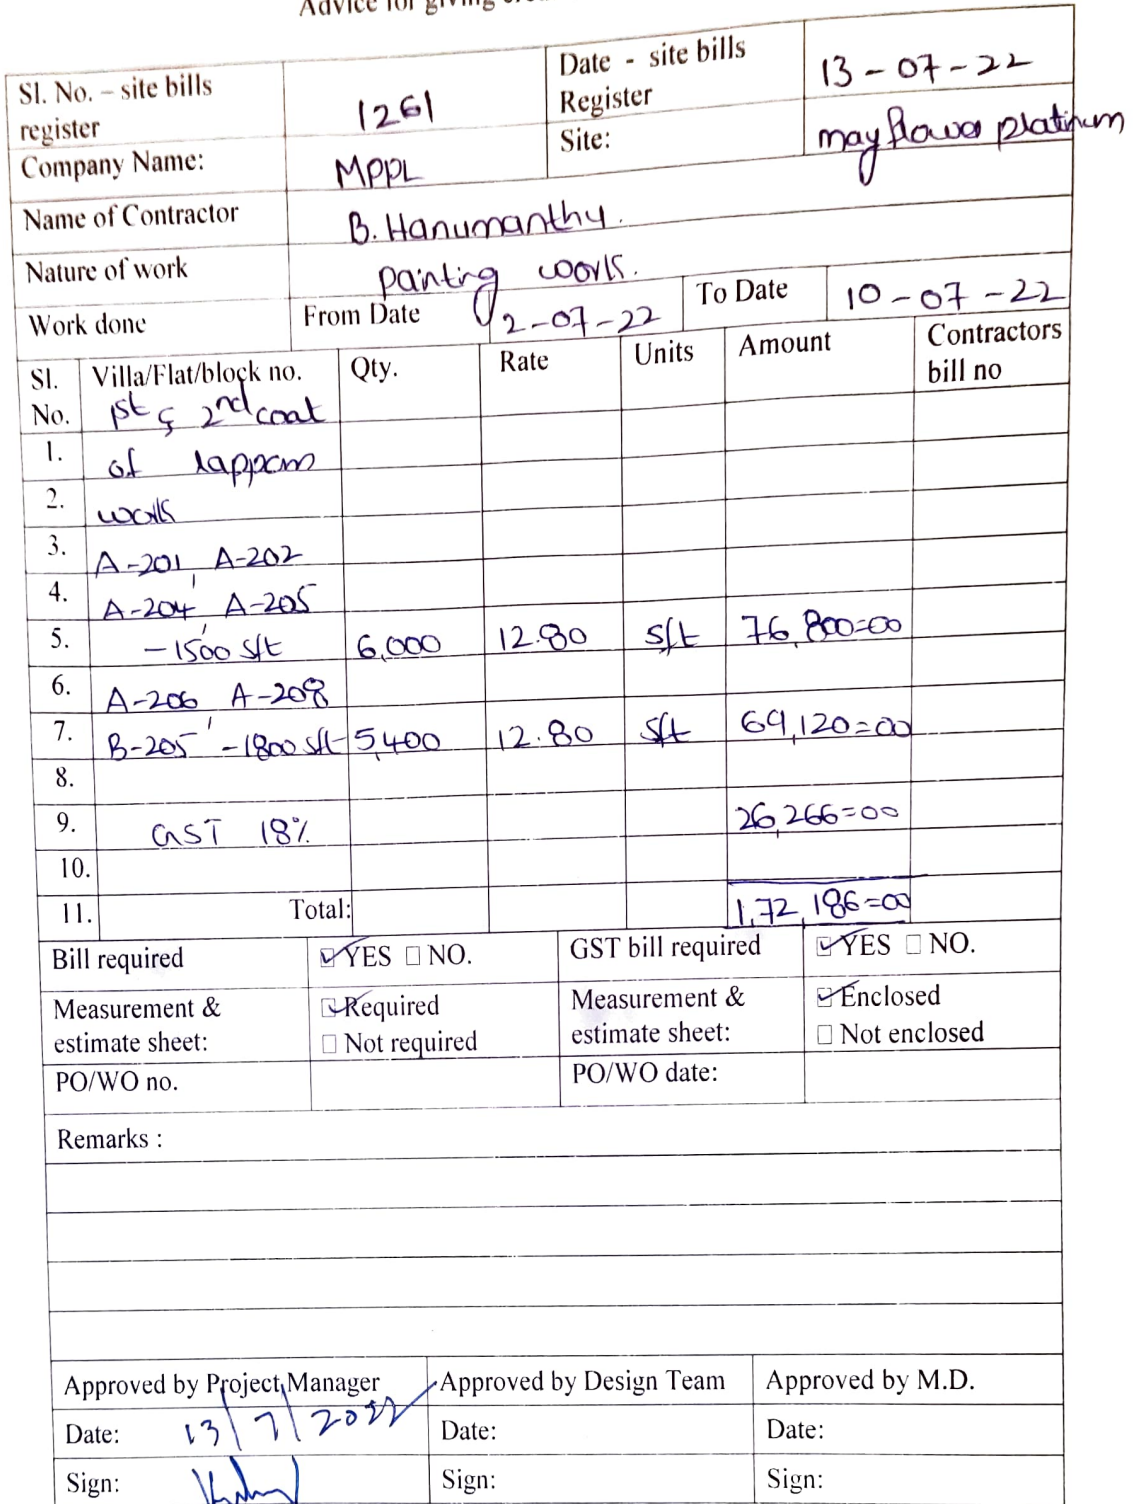 Advice for giving
Sl. No. – site bills register 1261 Date - site bills Register 13-07-22
Company Name: MPPL Site: mayflower platinum
Name of Contractor B. Hanumanthu.
Nature of work painting works.
Work done From Date 2-07-22 To Date 10-07-22
Sl. No. Villa/Flat/block no. Qty. Rate Units Amount Contractors bill no
1st & 2nd coat
1. of lappam
2. work
3. A-201, A-202
4. A-204, A-205
5. -1500 sft 6,000 12.80 sft 76,800=00
6. A-206, A-208
7. B-205 -1800 sft 5,400 12.80 sft 69,120=00
8.
9. GST 18% 26,266=00
10.
11. Total: 1,72,186=00
Bill required ☑ YES ☐ NO. GST bill required ☑ YES ☐ NO.
Measurement & estimate sheet: ☑ Required ☐ Not required Measurement & estimate sheet: ☑ Enclosed ☐ Not enclosed
PO/WO no. PO/WO date:
Remarks :
Approved by Project Manager Approved by Design Team Approved by M.D.
Date: 13/7/2022 Date: Date:
Sign: Sign: Sign: